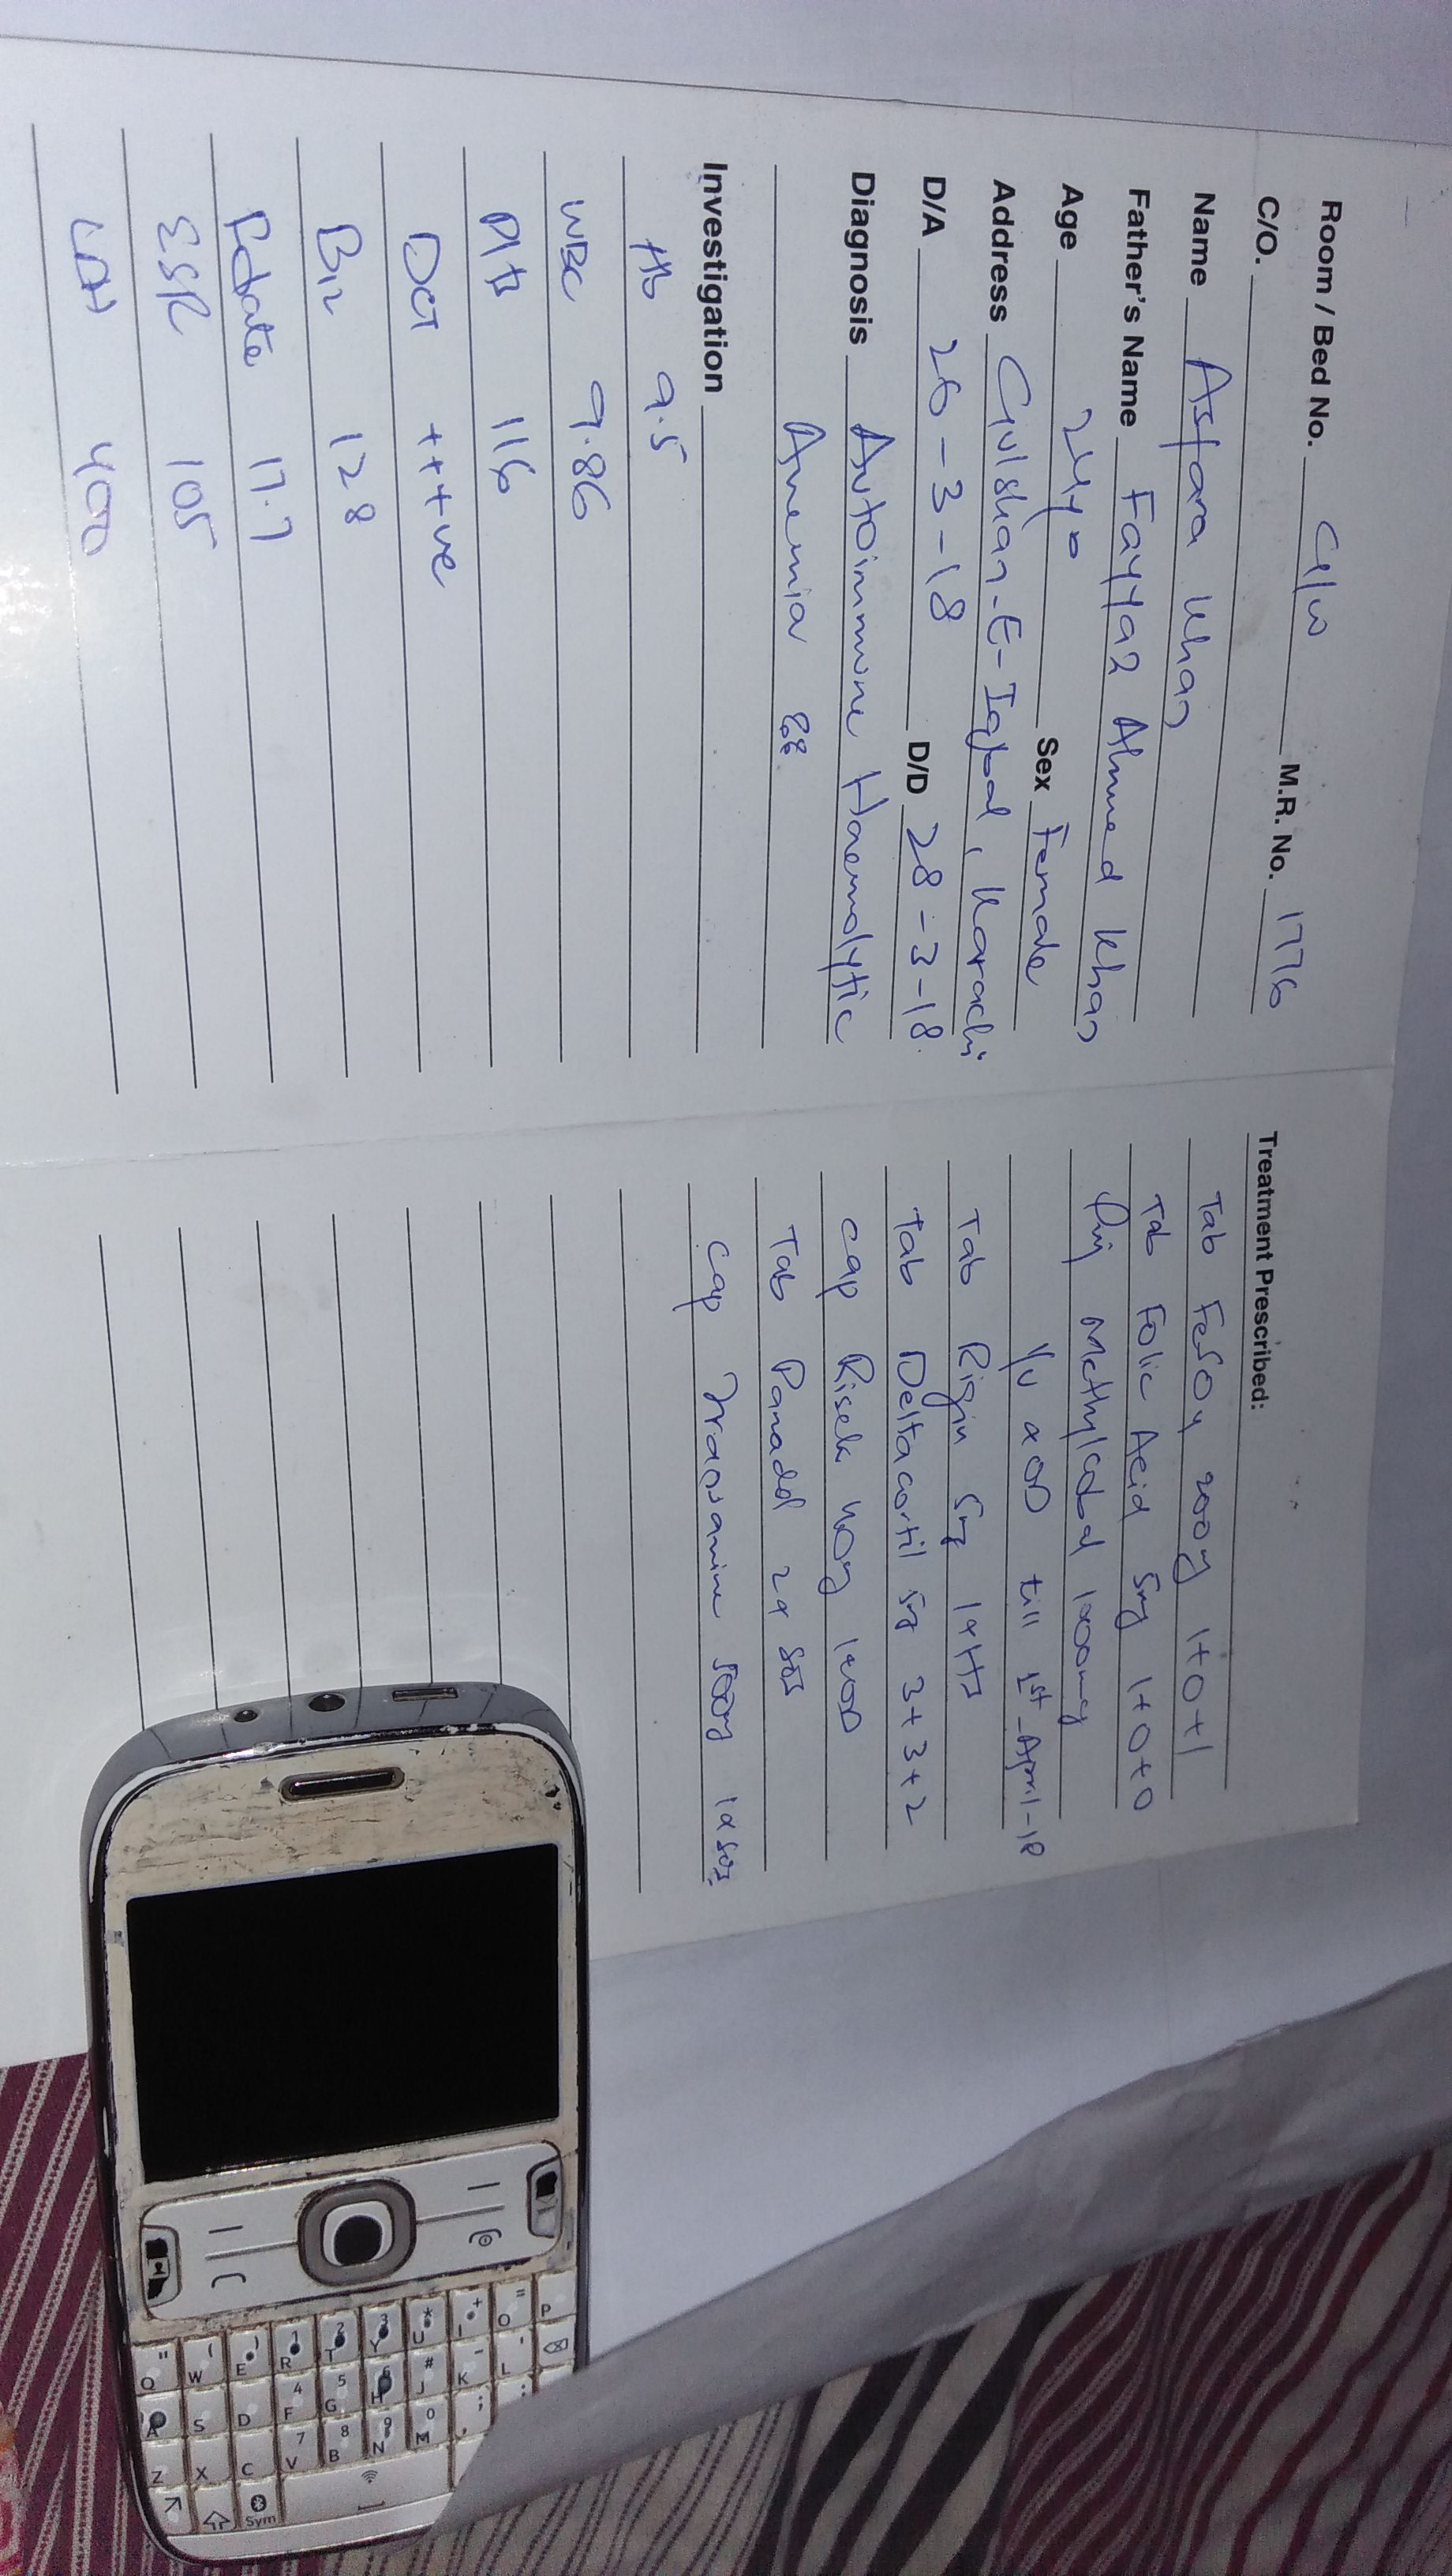 Room / Bed No. G/W M.R. No. 1776
C/O.
Name Asfara Khan
Father's Name Fayyaz Ahmed Khan
Age 24yo Sex Female
Address Gulshan-E-Iqbal, Karachi
D/A 26-3-18 D/D 28-3-18
Diagnosis Autoimmune Haemolytic
Anemia
Investigation
Hb 9.5
WBC 9.86
Plts 116
DCT +++ve
B12 128
Folate 17.7
ESR 105
LDH 400
Treatment Prescribed:
Tab FeSO4 200mg 1+0+1
Tab Folic Acid 5mg 1+0+0
Inj Methylcobal 1000mcg
I/V x OD till 1st-April-18
Tab Rigix 5mg 1xHS
Tab Deltacortil 5mg 3+3+2
Cap Risek 40mg 1xOD
Tab Panadol 2x SOS
Cap Transamine 500mg 1xSOS
P O I U Y T R E W Q
L K J H G F D S A
M N B V C X Z
Sym